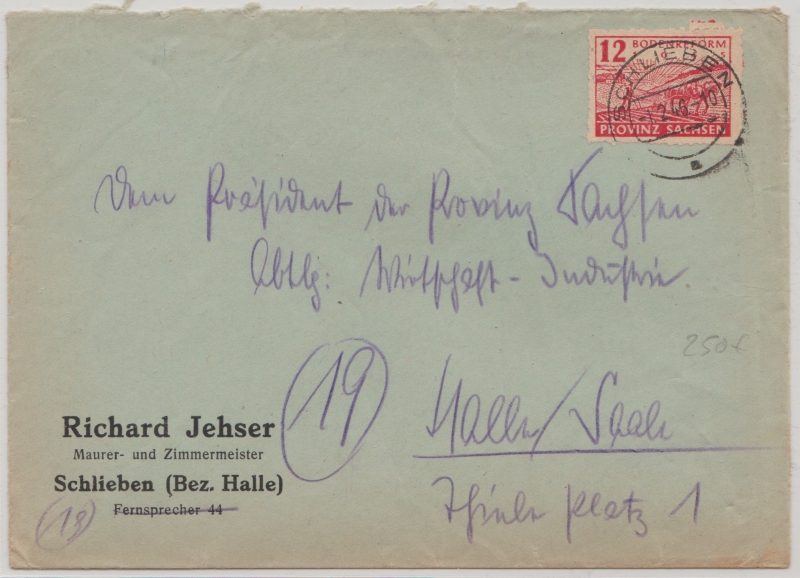 12 BODENREFORM
PROVINZ SACHSEN
SCHLIEBEN
a
Dem Präsident der Provinz Sachsen
Abtlg: Wirtschaft - Industrie.
250,-
19
Halle/Saale
Richard Jehser
Maurer- und Zimmermeister
Schlieben (Bez. Halle)
Fernsprecher 44
(19)
platz 1